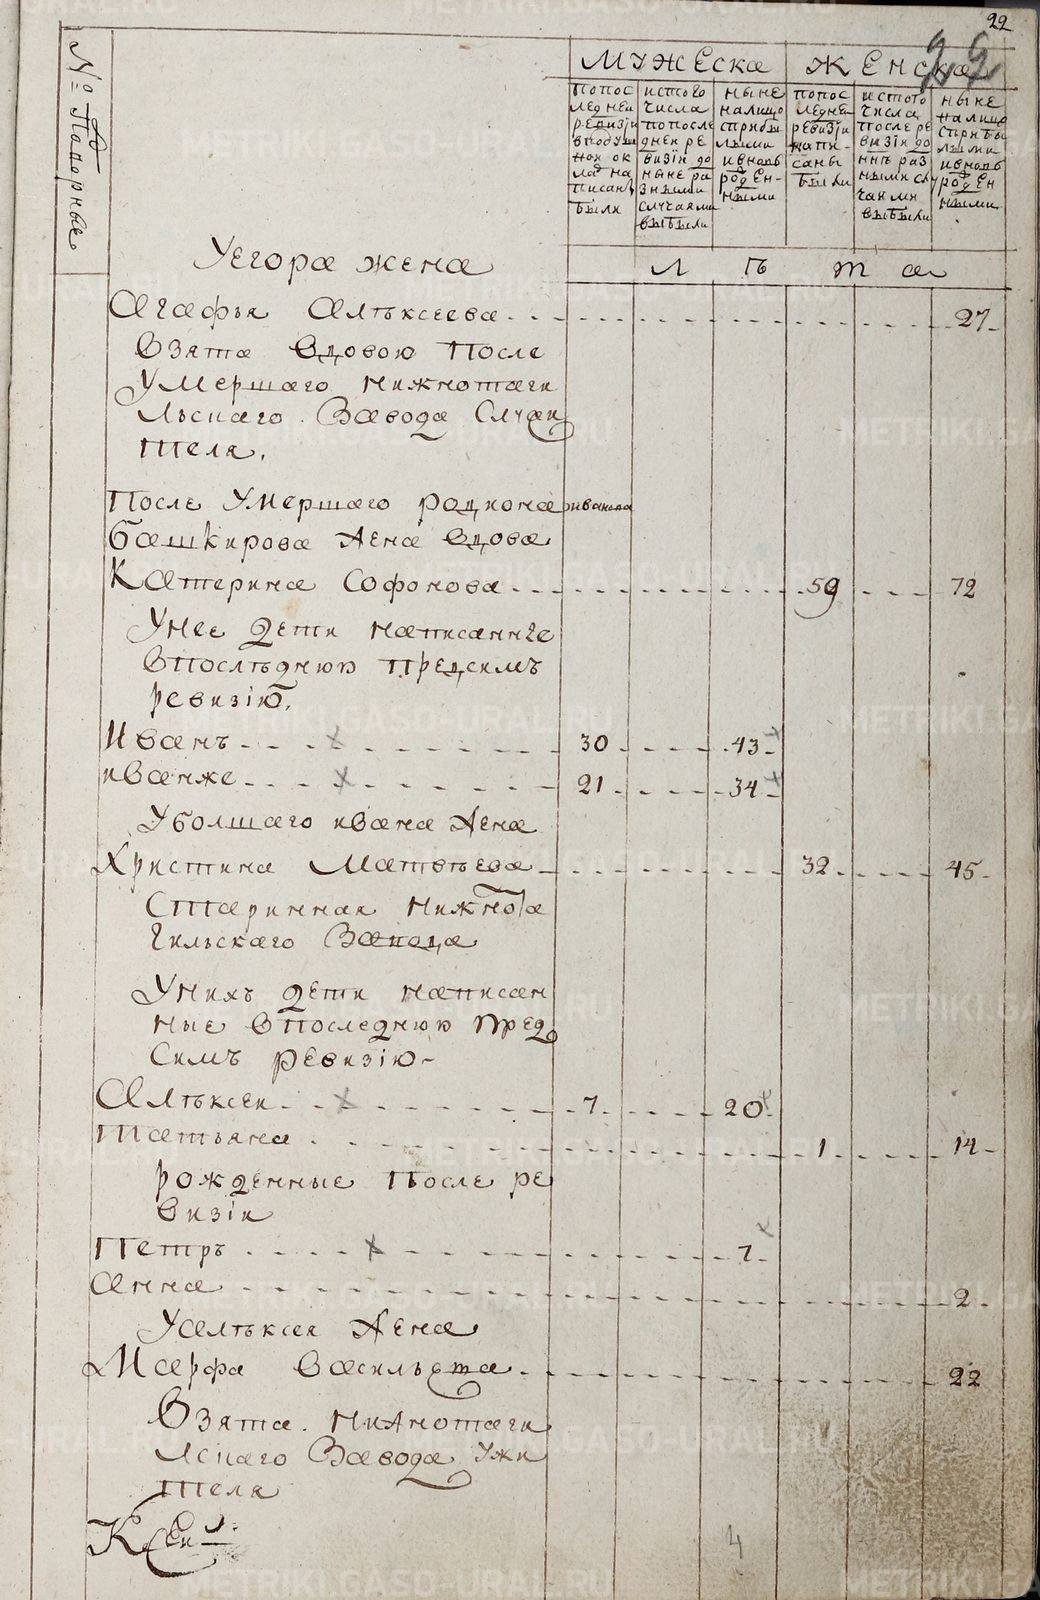 22
22
№ Подворные
МУЖЕска
ЖЕнска
попос
леднеи
ревизiи
в подуш
ном ок
ладе на
писаны
были
истого
числа
попосле
днеи ре
визiи до
ныне ра
зными
случаями
выбыли
ныне
налицо
сприбы
лыми
ивновь
рожден-
ными
попос
леднеи
ревизiи
напи-
саны
были
истого
числа
после ре
визiи до
нынѣ раз
ными слу
чаями
выбыли
ныне
налицо
сприбы
лыми
ивновь
рожден
ными
Л ѣ т а
Уегора жена
Агафья Алѣксеева 27
Взята вдовою после
Умершаго нижнотаги
льскаго Завода Служи
теля.
После Умершаго родиона иванова
башкирова жена вдова
Катерина Софонова 59 72
Унее дети написанные
Впослѣднюю предсимъ
ревизiю.
Иванъ 30 43
иванже 21 34
Уболшаго ивана жена
Христина Матвѣева 32 45
Старинная нижнота
гильскаго Завода
Унихъ дети написан
ные впоследнюю пред
Симъ ревизiю
Алѣксеи 7 20
Татьяна 1 14
рожденные После ре
визiи
Петръ 7
анна 2
Уалѣксея жена
Марфа васильева 22
Взята нижнотаги
лскаго Завода Ужи
теля
4